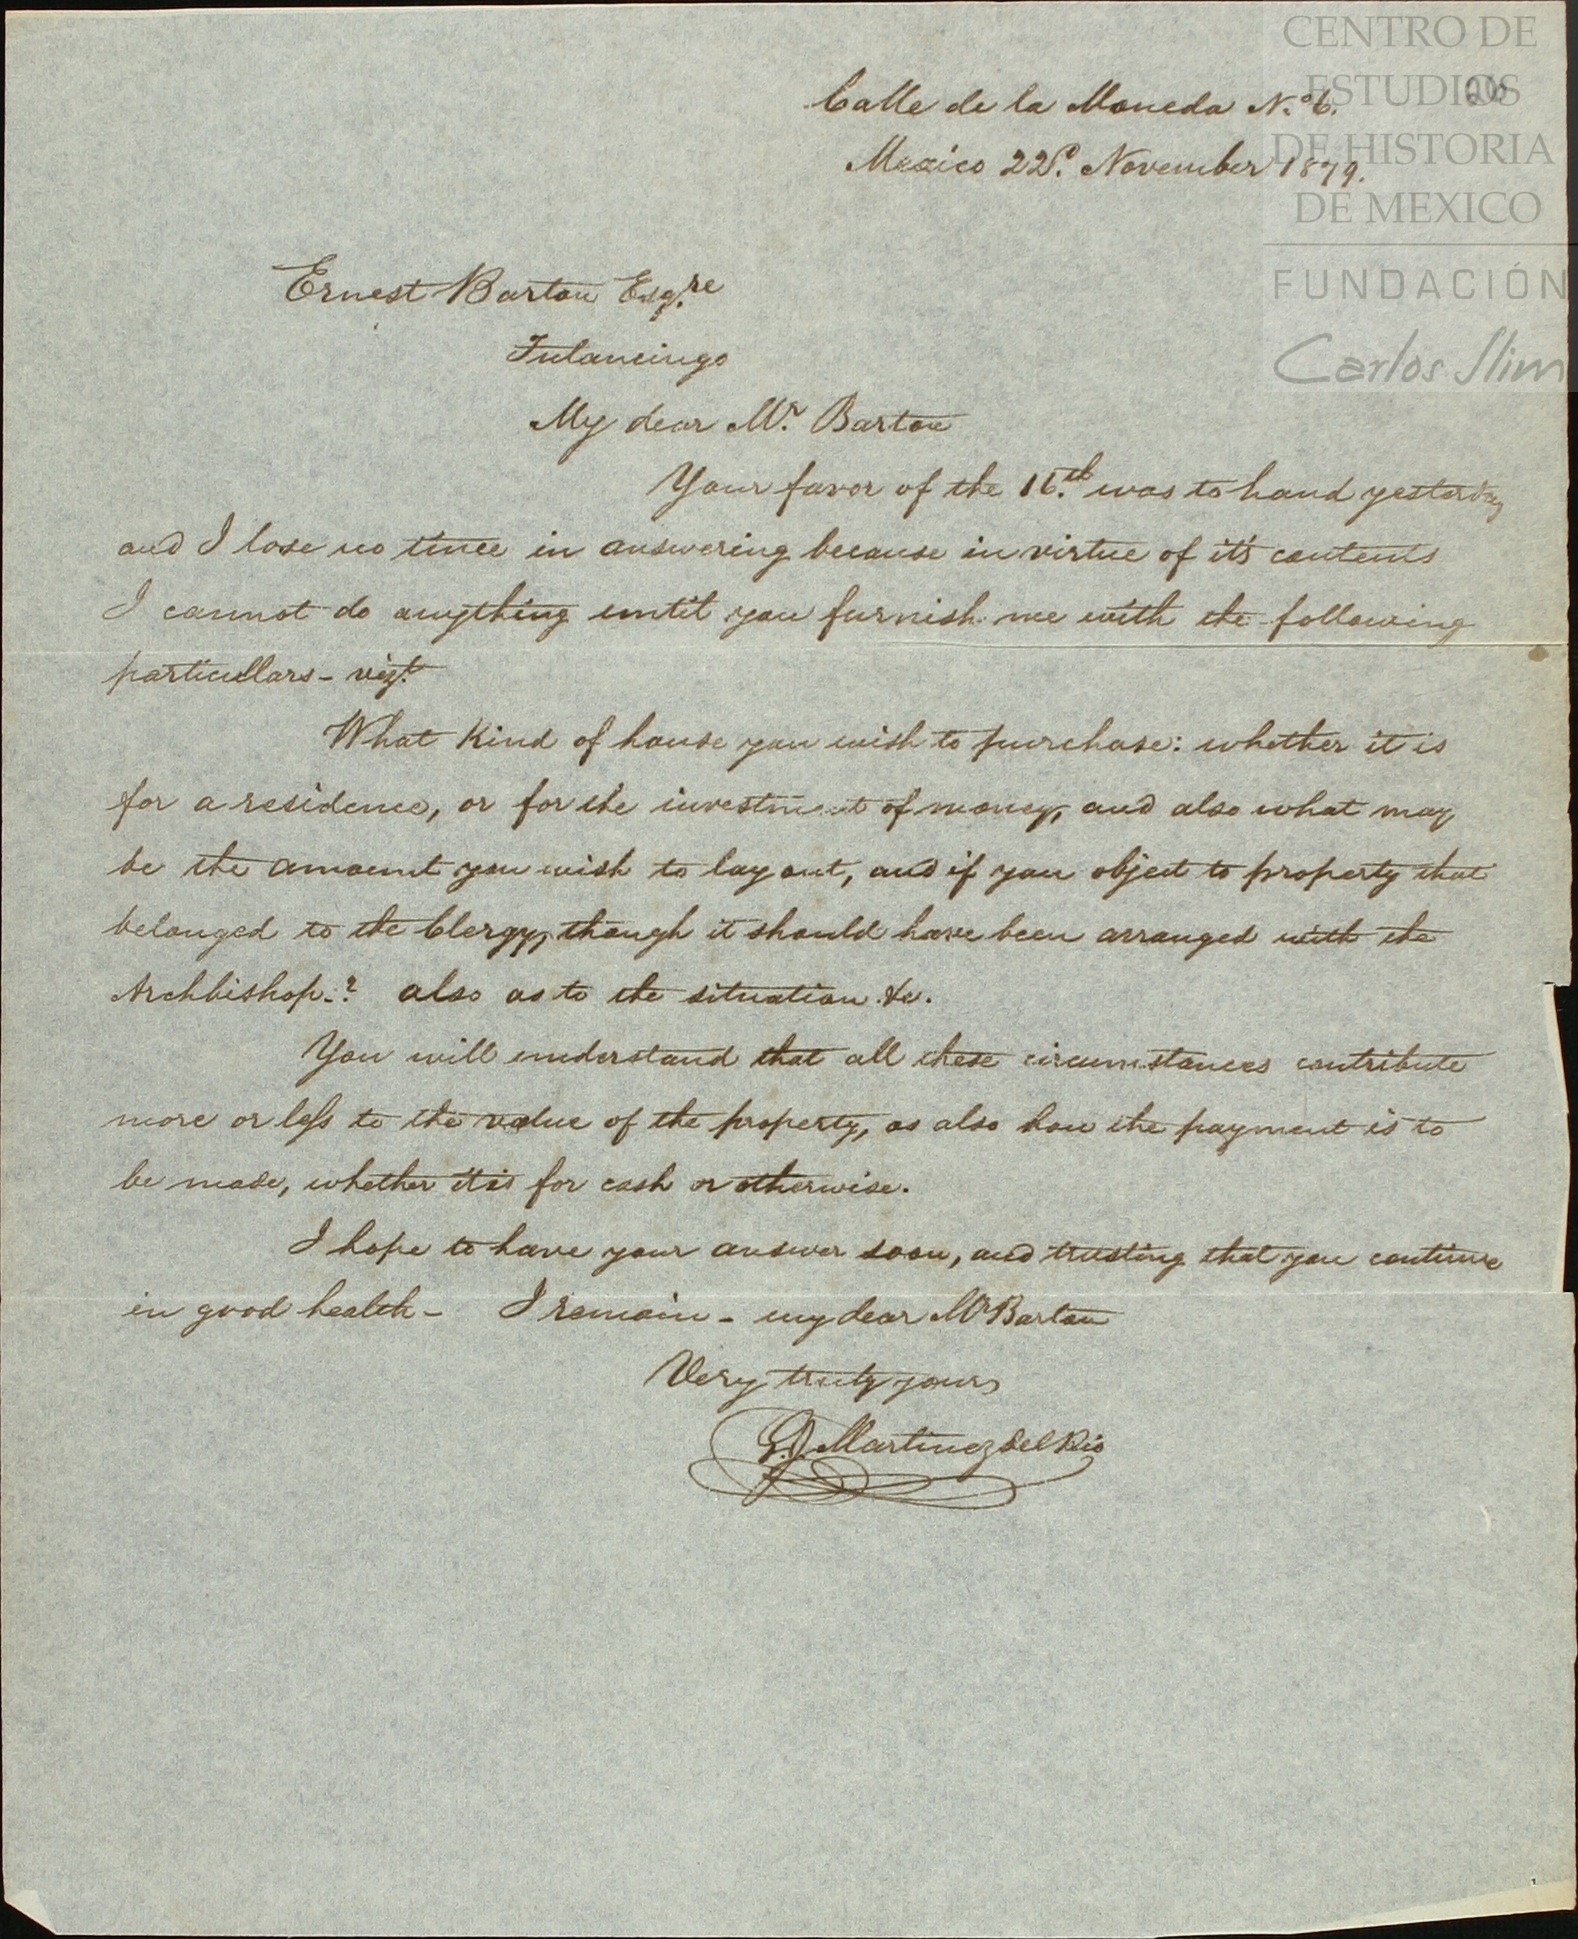 CENTRO DE
ESTUDIOS
DE HISTORIA
DE MEXICO
FUNDACIÓN
Carlos Slim
Calle de la Moneda N.º 6.
Mexico 22d. November 1879.
Ernest Barton Esq.re
Tulancingo
My dear Mr. Barton
Your favor of the 16.th was to hand yesterday
and I lose no time in answering because in virtue of it's contents
I cannot do anything until you furnish me with the following
particullars - vizt.
What kind of house you wish to purchase: whether it is
for a residence, or for the investment of money, and also what may
be the amount you wish to lay out, and if you object to property that
belonged to the Clergy, though it should have been arranged with the
Archbishop.? also as to the situation &c.
You will understand that all these circumstances contribute
more or less to the value of the property, as also how the payment is to
be made, whether it is for cash or otherwise.
I hope to have your answer soon, and trusting that you continue
in good health - I remain - my dear Mr Barton
Very truly yours
Martinez del Rio